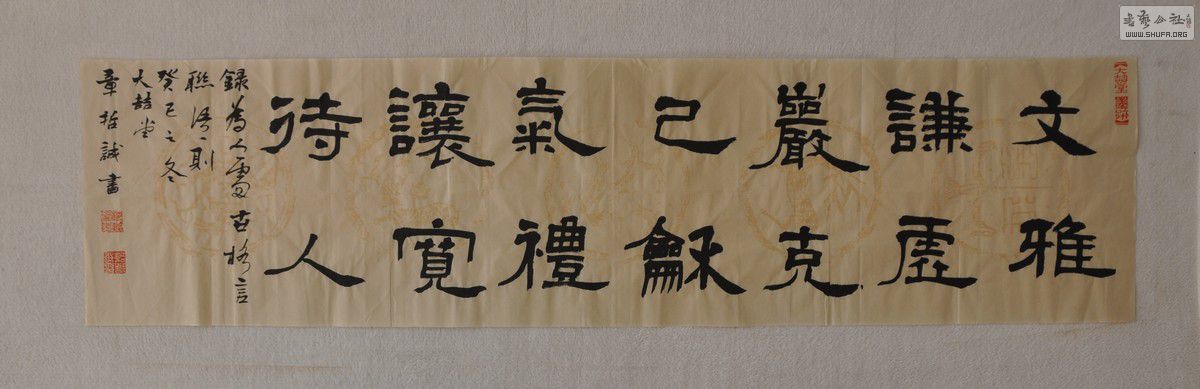 文雅
謙虛
嚴克
己龢
氣禮
讓寬
待人
録為人處世格言
聯語一則
癸巳之冬
大喆堂
章哲誠書
書藝公社
WWW.SHUFA.ORG